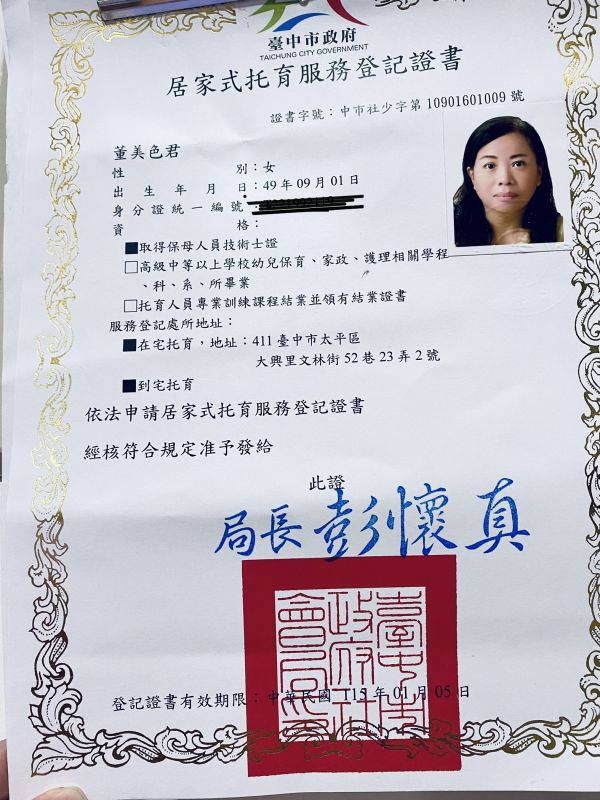 臺中市政府
TAICHUNG CITY GOVERNMENT
居家式托育服務登記證書
證書字號：中市社少字第 10901601009 號
董美色君
性別：女
出生年月日：49年09月01日
身分證統一編號：
資格：
■取得保母人員技術士證
□高級中等以上學校幼兒保育、家政、護理相關學程
、科、系、所畢業
□托育人員專業訓練課程結業並領有結業證書
服務登記處所地址：
■在宅托育，地址：411臺中市太平區
大興里文林街52巷23弄2號
■到宅托育
依法申請居家式托育服務登記證書
經核符合規定准予發給
此證
局長彭懷真
臺中市政府社會局印
登記證書有效期限：中華民國 115年01月05日